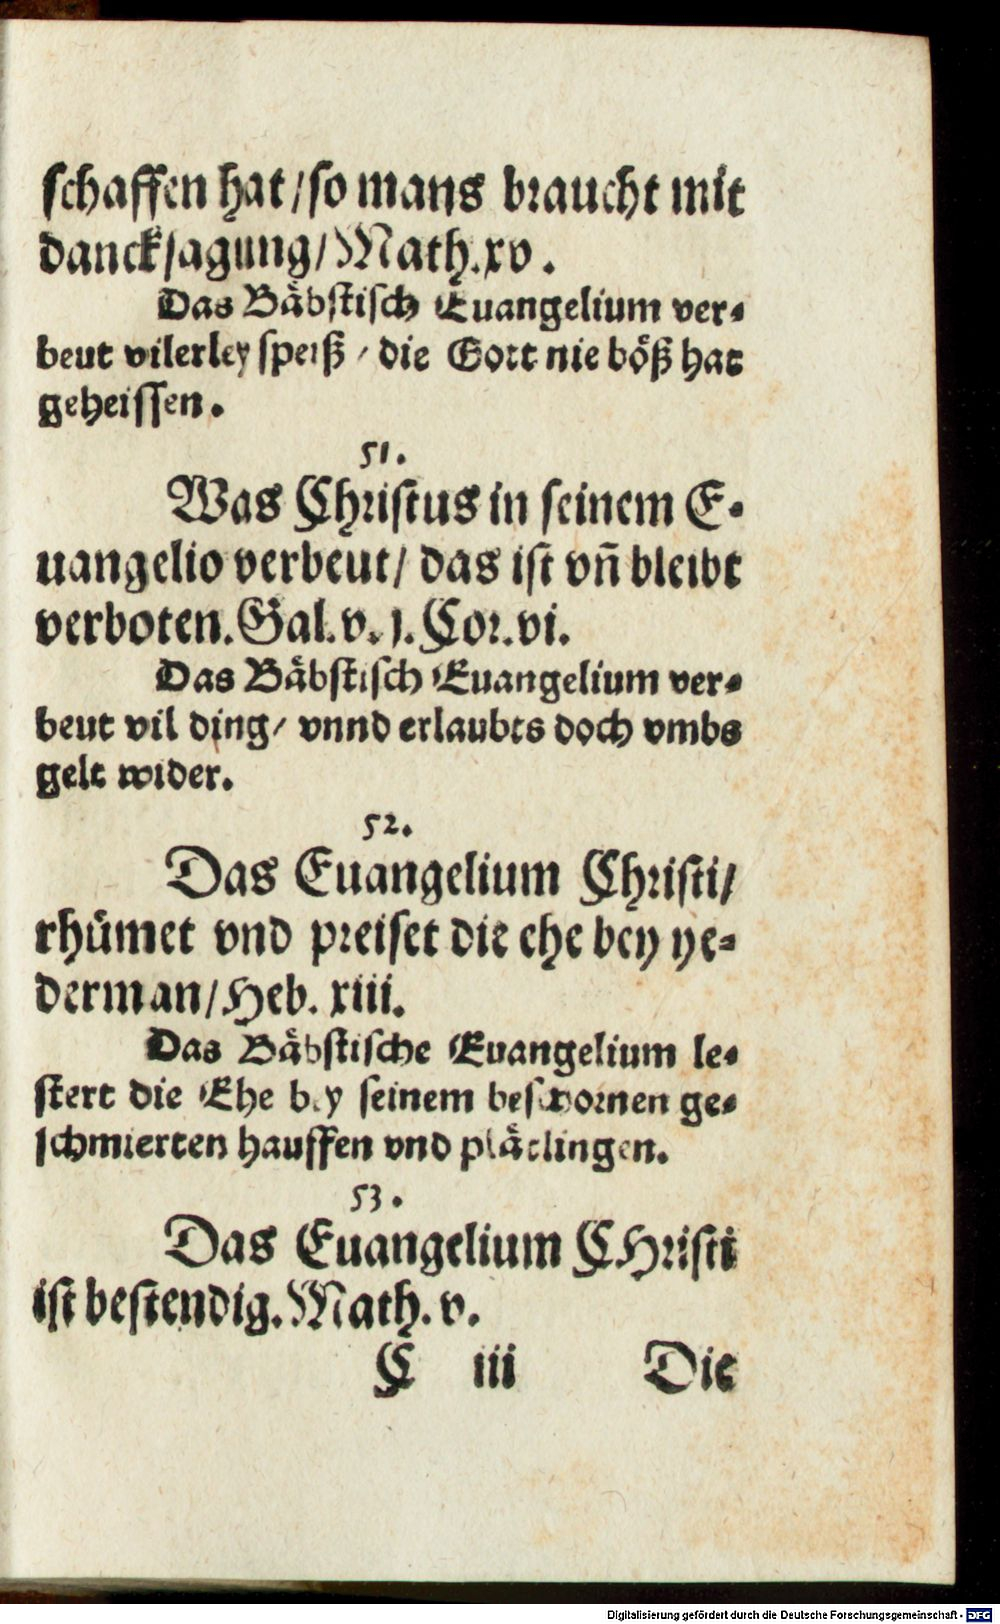 schaffen hat/ so mans braucht mit
dancksagung/ Math. xv.
Das Bäbstisch Euangelium ver-
beut vilerley speiß / die Gott nie böß hat
geheissen.
51.
Was Christus in seinem E-
uangelio verbeut/ das ist vñ bleibt
verboten. Gal. v. j. Cor. vi.
Das Bäbstisch Euangelium ver-
beut vil ding/ vnnd erlaubts doch vmbs
gelt wider.
52.
Das Euangelium Christi/
rhümet vnd preiset die ehe bey ye-
derman/ Heb. xiii.
Das Bäbstische Euangelium le-
stert die Ehe bey seinem beschwornen ge-
schmierten hauffen vnd plätlingen.
53.
Das Euangelium CHristi
ist bestendig. Math. v.
C iii Die
Digitalisierung gefördert durch die Deutsche Forschungsgemeinschaft - DFG